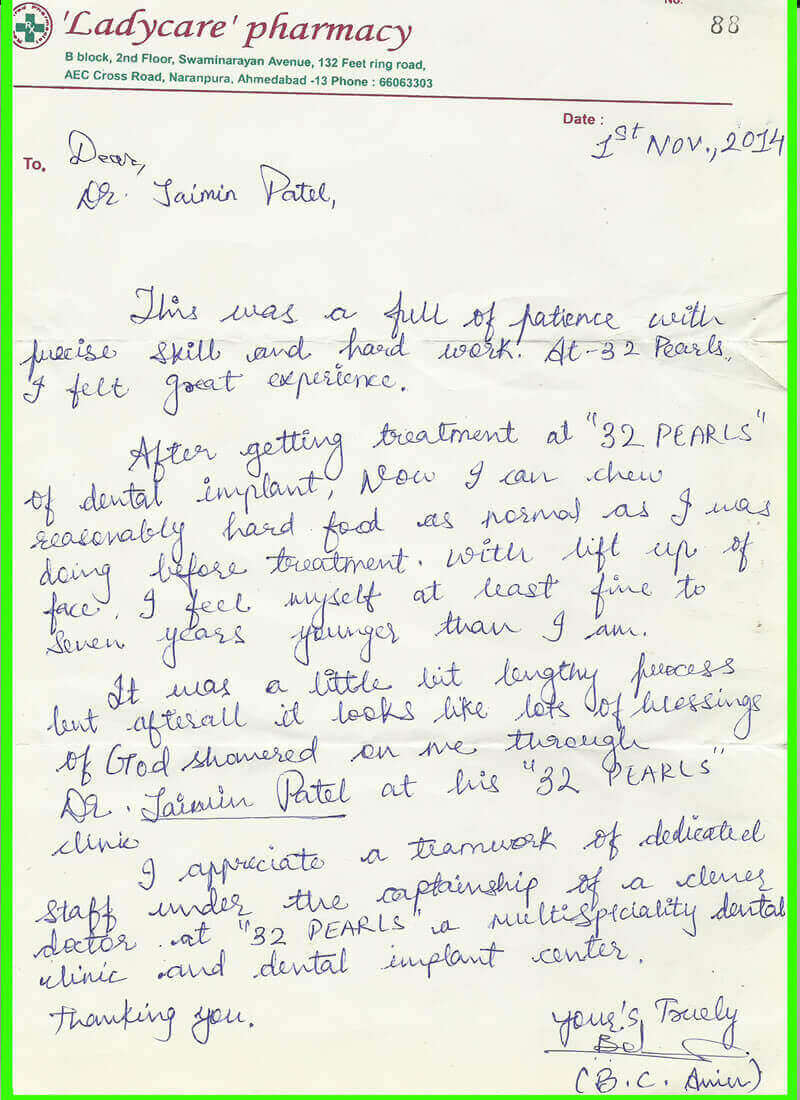 No.
88
'Ladycare' pharmacy
B block, 2nd Floor, Swaminarayan Avenue, 132 Feet ring road,
AEC Cross Road, Naranpura, Ahmedabad -13 Phone : 66063303
Date :
1st Nov., 2014
To, Dear,
Dr. Jaimin Patel,
This was a full of patience with
precise skill and hard work. At-32 Pearls,
I felt great experience.
After getting treatment at "32 PEARLS"
of dental implant, Now I can chew
reasonably hard food as normal as I was
doing before treatment. With lift up of
face, I feel myself at least five to
seven years younger than I am.
It was a little bit lengthy process
but afterall it looks like lots of blessings
of God showered on me through
Dr. Jaimin Patel at his "32 PEARLS"
clinic
I appreciate a teamwork of dedicated
staff under the captainship of a clever
doctor at "32 PEARLS" a multispeciality dental
clinic and dental implant center.
Thanking you.
Your's Truely
(B. C. Amin)